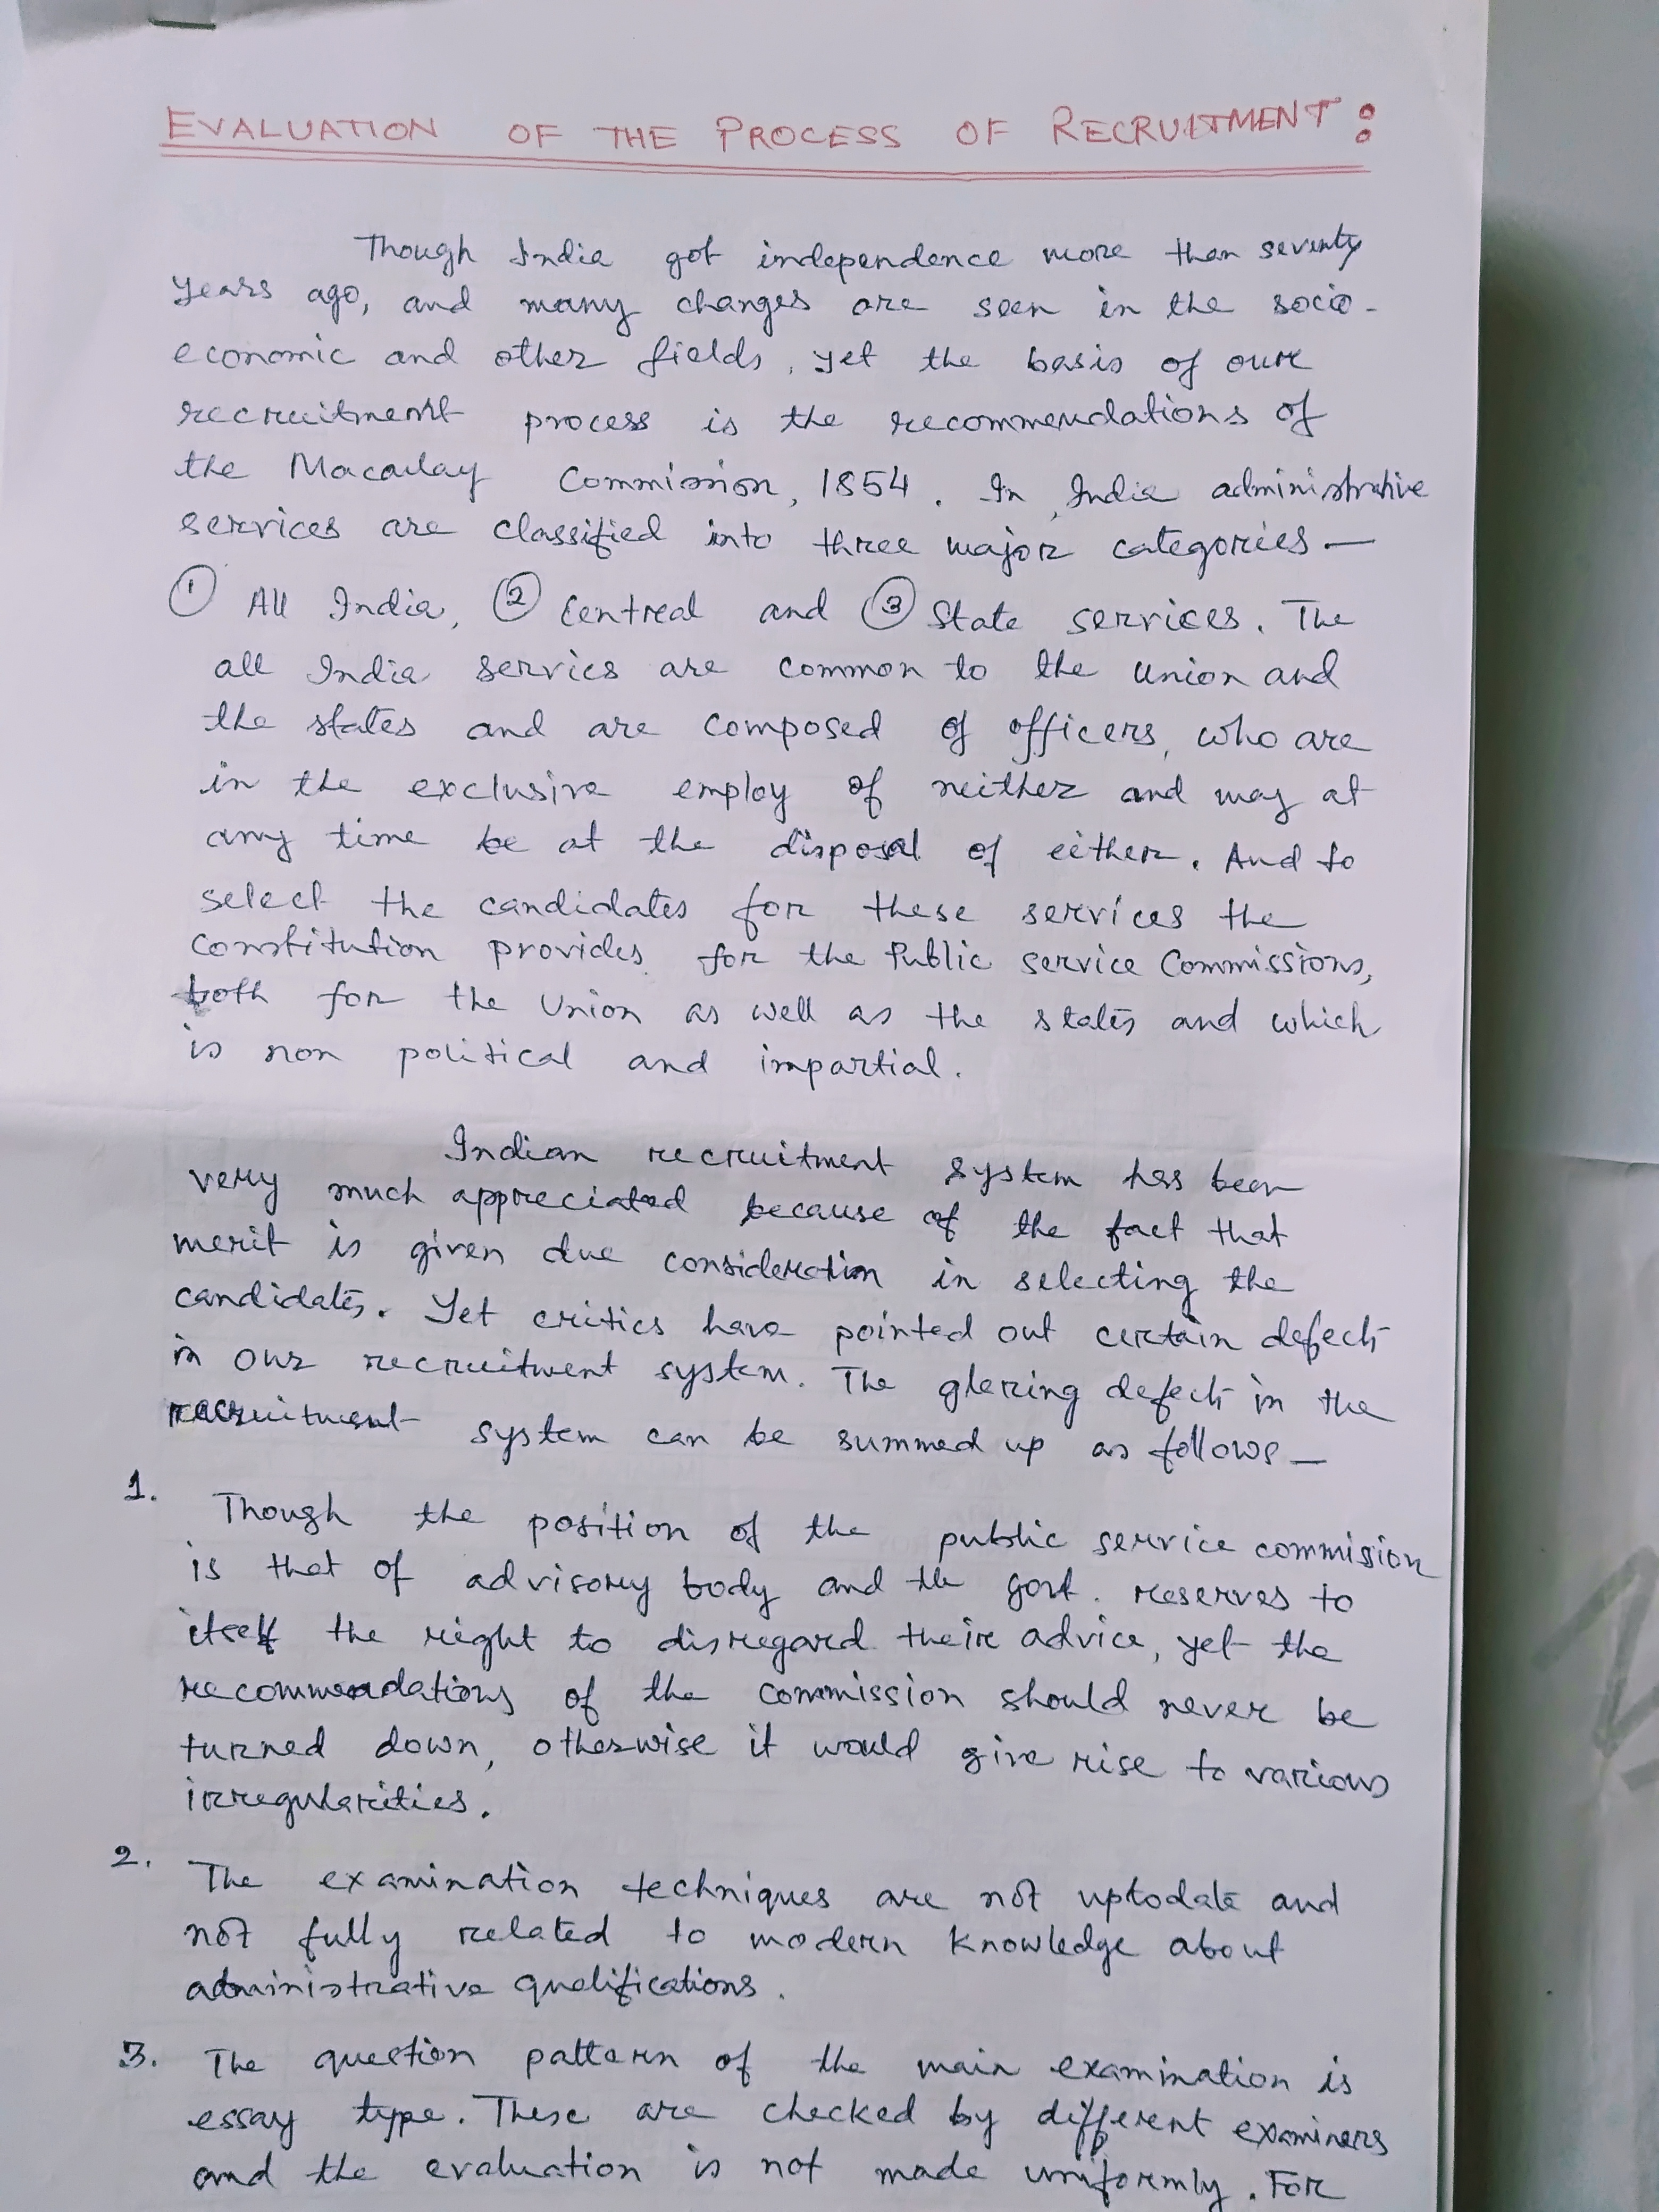 EVALUATION OF THE PROCESS OF RECRUITMENT :
Though India got independence more than seventy
years ago, and many changes are seen in the socio-
economic and other fields, yet the basis of our
recruitment process is the recommendations of
the Macaulay Commission, 1854. In India administrative
services are classified into three major categories —
① All India, ② Central and ③ State services. The
all India servics are common to the Union and
the states and are composed of officers, who are
in the exclusive employ of neither and may at
any time be at the disposal of either. And to
select the candidates for these services the
Constitution provides for the Public Service Commissions,
both for the Union as well as the states and which
is non political and impartial.
Indian recruitment system has been
very much appreciated because of the fact that
merit is given due consideration in selecting the
candidates. Yet critics have pointed out certain defects
in our recruitment system. The glaring defects in the
recruitment system can be summed up as follows —
1. Though the position of the public service commision
is that of advisory body and the govt. reserves to
itself the right to disregard their advice, yet the
recommendations of the commission should never be
turned down, otherwise it would give rise to various
irregularities.
2. The examination techniques are not uptodate and
not fully related to modern knowledge about
administrative qualifications.
3. The question pattern of the main examination is
essay type. These are checked by different examiners
and the evaluation is not made uniformly. For